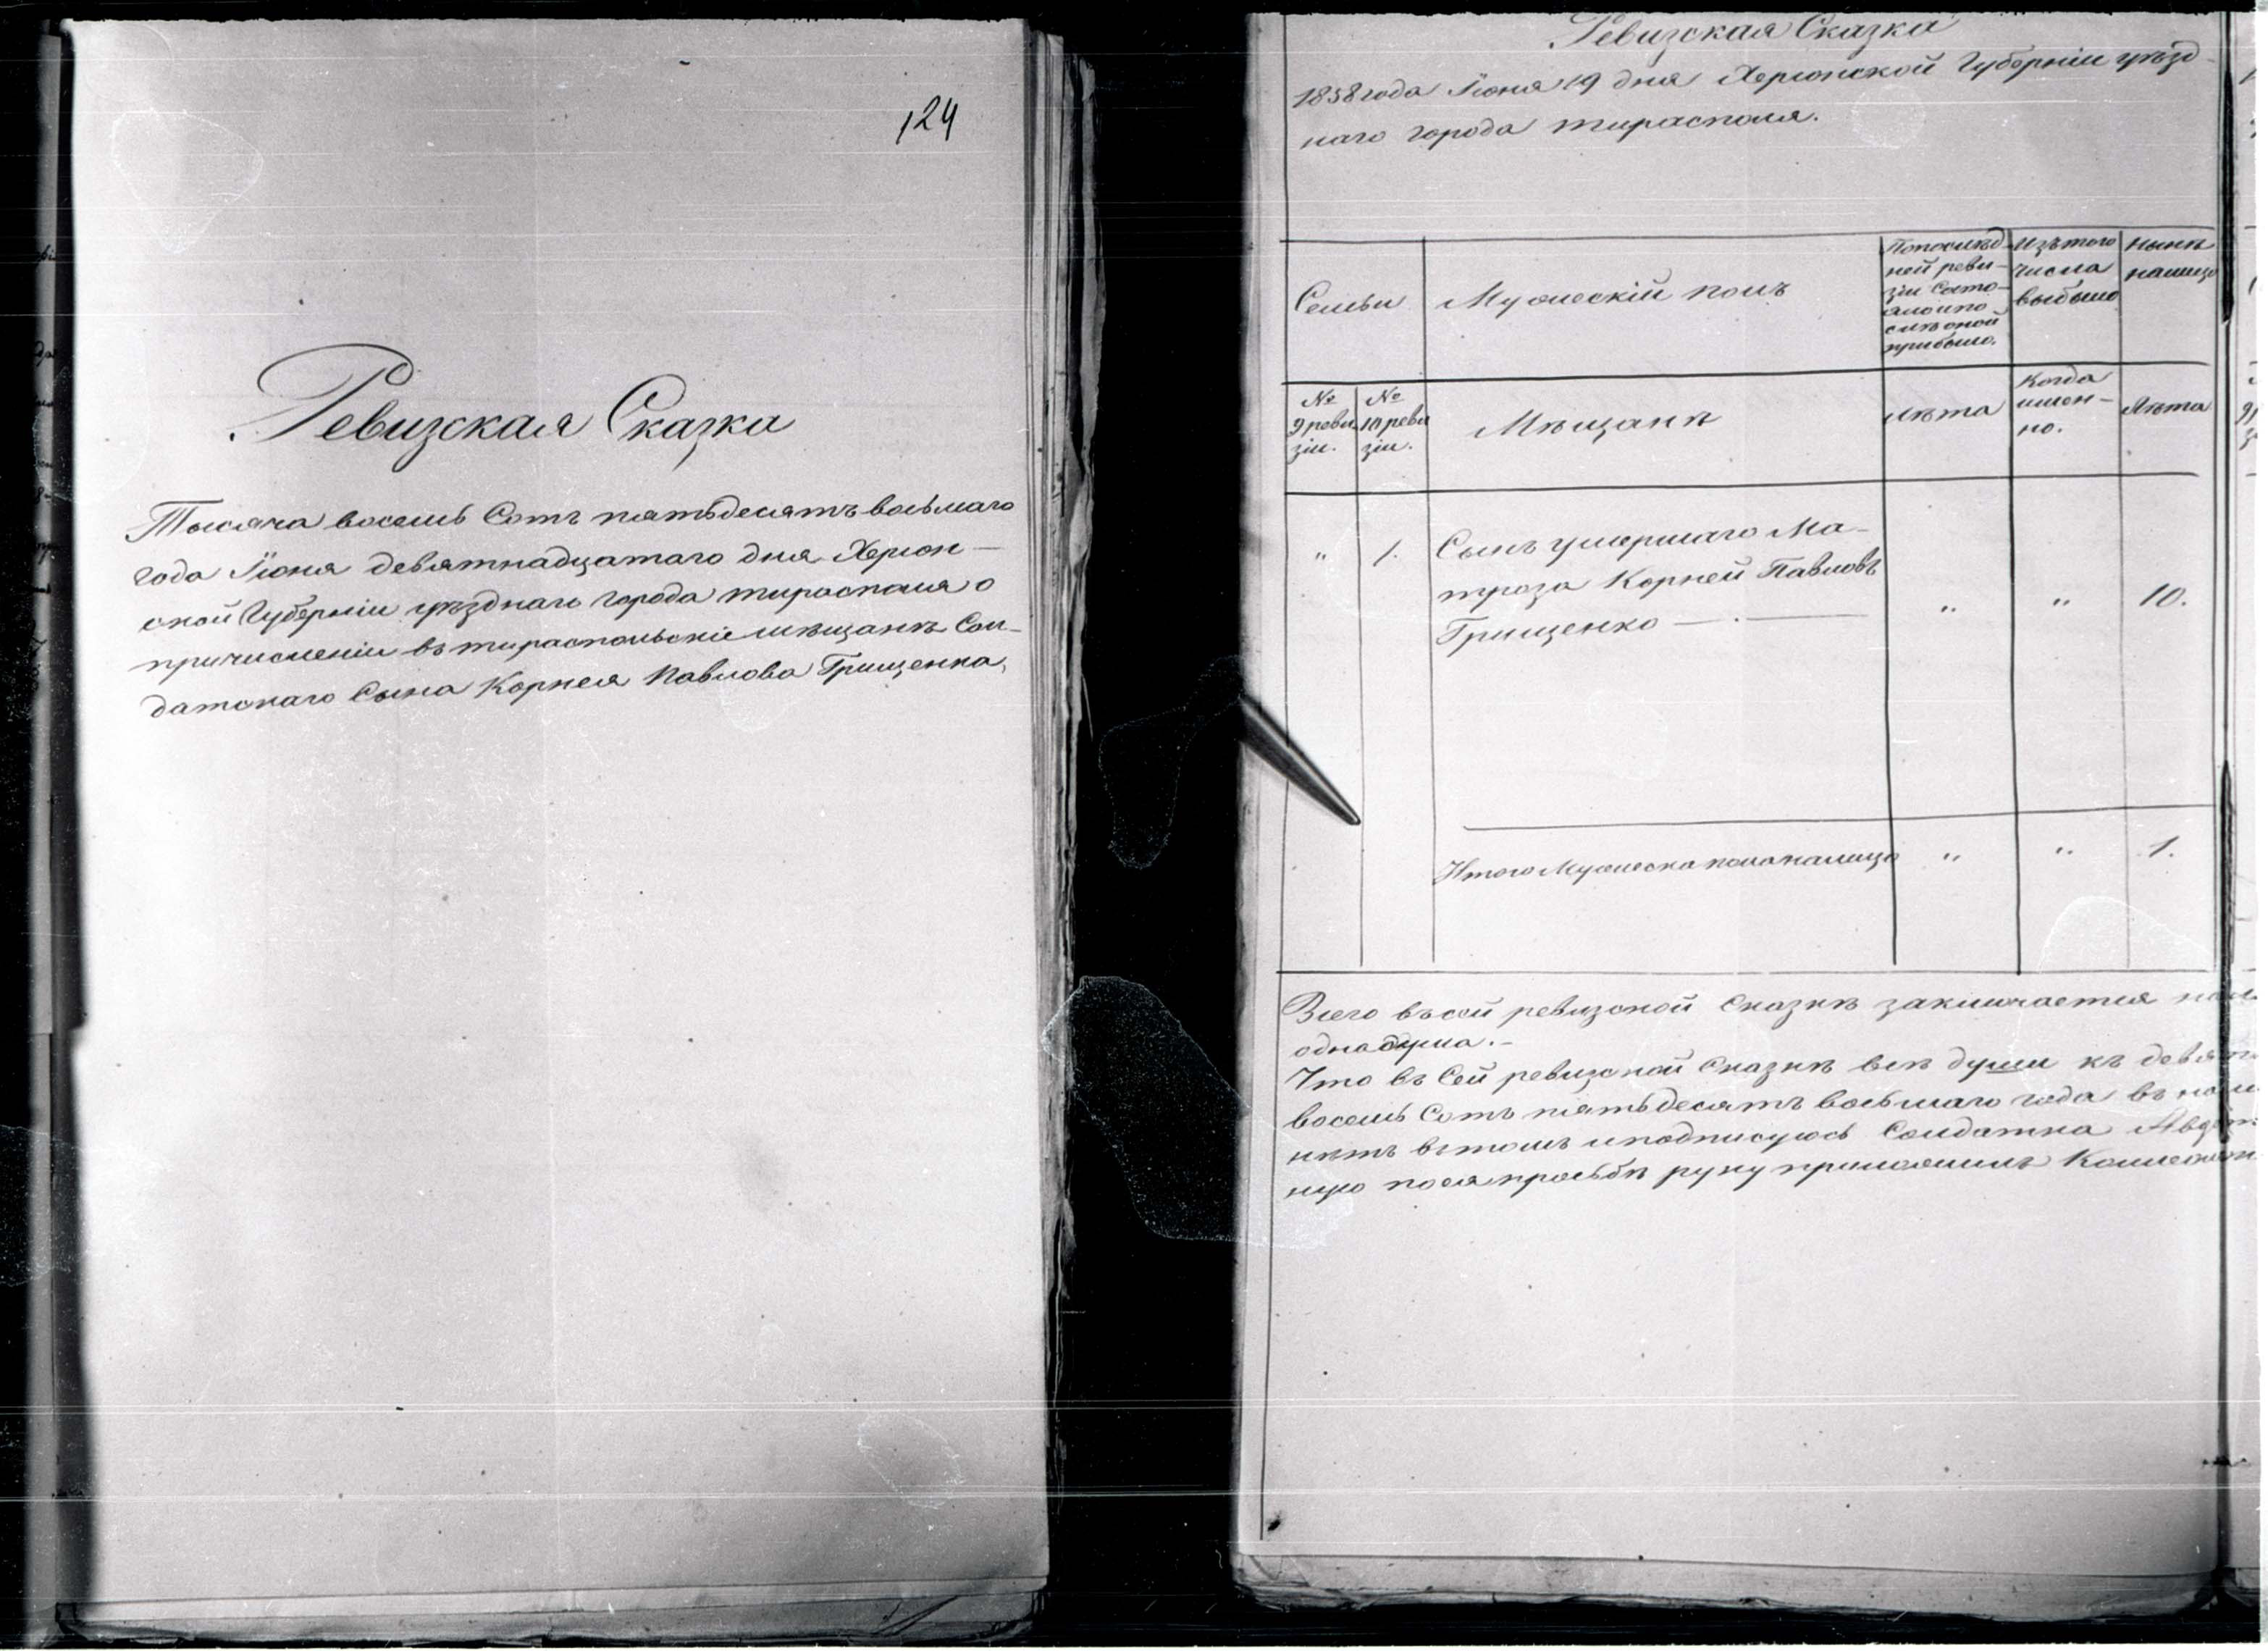 124
Ревизская Сказка
Тысяча восемь Сотъ пятьдесятъ восьмаго
года Іюня девятнадцатаго дня Херсон-
ской Губерніи уѣзднаго города тирасполя о
причисленіи въ тираспольскіе мѣщанѣ Сол-
датскаго Сына Корнея Павлова Грищенка,
Ревизская Сказка
1858 года Іюня 19 дня Херсонской Губерніи уѣзд-
наго города тирасполя.
Семьи
Мужескій полъ
По послѣд-
ней реви-
зіи состо-
яло и по
слѣ оной
прибыло.
Изъ того
числа
выбыло
Нынѣ
налицо
№
9 реви
зіи.
№
10 реви
зіи.
Мѣщанѣ
лѣта
Когда
имен-
но.
Лѣта
„ 1. Сынъ умершаго Ма-
троза Корней Павловъ
Грищенко — . — „ „ 10.
Итого Мужеска пола налицо „ „ 1.
Всего въ сей ревизской Сказкѣ заключается
одна душа.-
Что въ Сей ревизской Сказкѣ всѣ души къ
восемь Сотъ пятьдесятъ восьмаго года въ
нѣтъ въ томъ и подписуюсь Солдатка
ную по ея прозьбѣ руку приложилъ